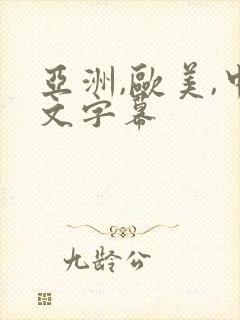 亞洲,歐美,中
文字幕
九龄公